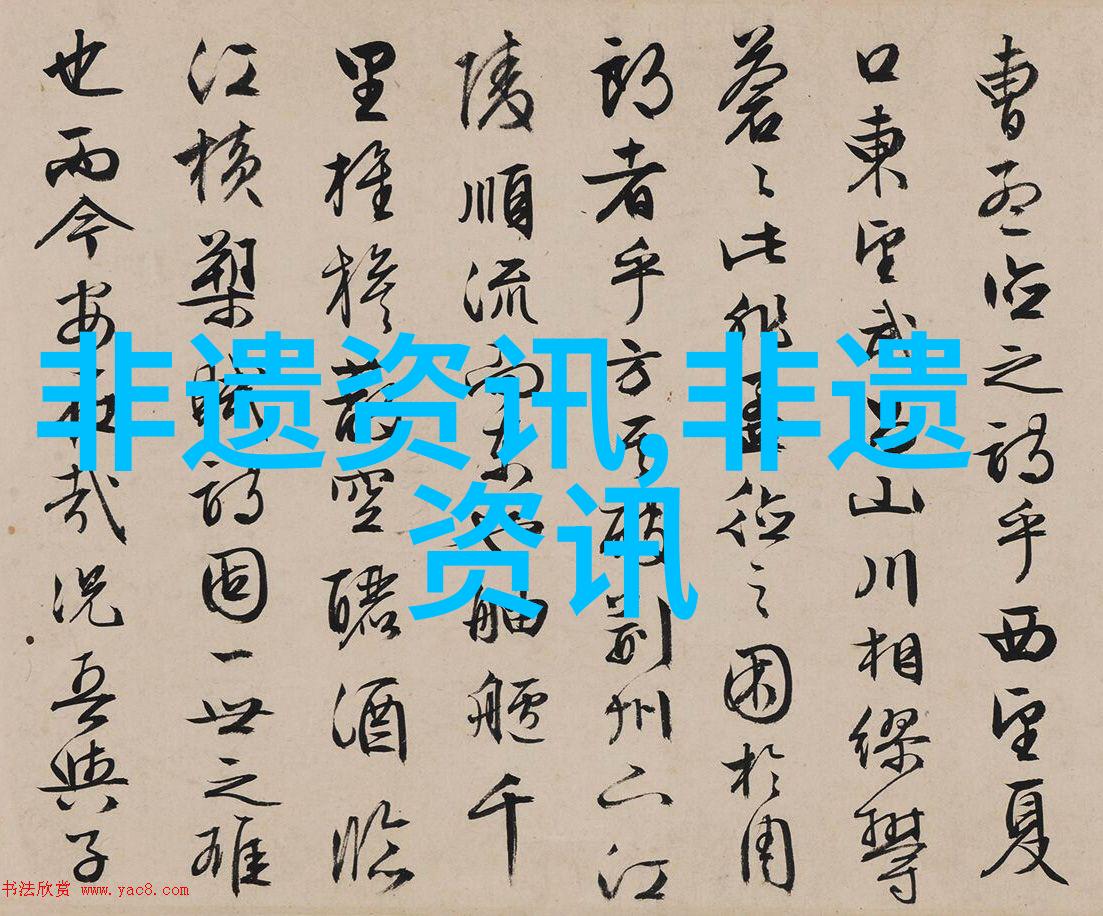 曹孟德之詩乎西望夏
口東望武昌山川相繆鬱
蒼〻此非孟德之困於周
郎者乎方其破荊州下江
陵順流而東也舳艫千
里旌旗蔽空釃酒臨
江橫槊賦詩固一世之雄
也而今安在哉況吾與子
非遗资讯,非遗
资讯
书法欣赏 www.yac8.com